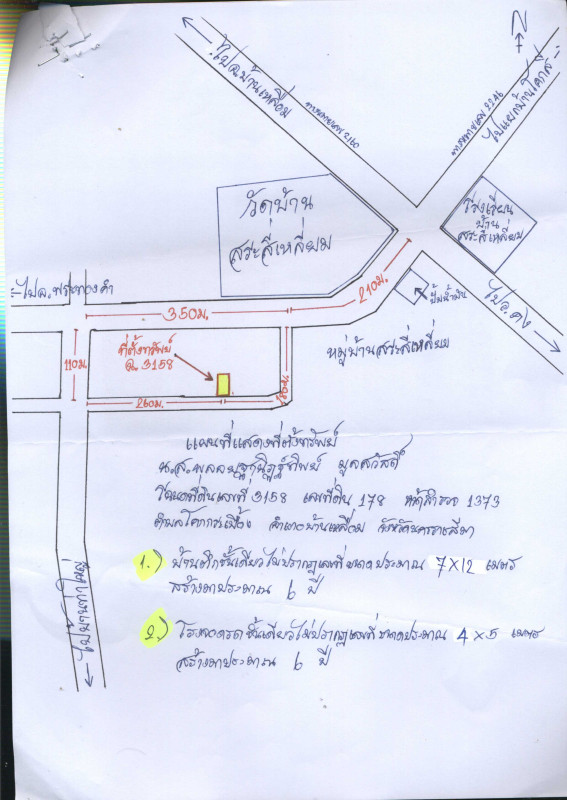 N
ไปอ.บ้านเหลื่อม
ทางหลวงหมายเลข 2160
ไปแยกบ้านโคกสี
วัดบ้าน
สระสี่เหลี่ยม
โรงเรียน
บ้าน
สระสี่เหลี่ยม
ไปอ.พระทองคำ
350 ม.
210 ม.
ปั๊มน้ำมัน
ไปอ.คง
110 ม.
ที่ตั้งทรัพย์
ฉ. 3158
หมู่บ้านสระสี่เหลี่ยม
260 ม.
ไปบ้านตาใหญ่
แผนที่แสดงที่ตั้งทรัพย์
น.ส. มูลสวัสดิ์
โฉนดที่ดินเลขที่ 3158 เลขที่ดิน 178 หน้าสำรวจ 1373
ตำบลโคกกระเบื้อง อำเภอบ้านเหลื่อม จังหวัดนครราชสีมา
1.) บ้านตึกชั้นเดียวไม่ปรากฏเลขที่ขนาดประมาณ 7x12 เมตร
สร้างมาประมาณ 6 ปี
2.) โรงจอดรถชั้นเดียวไม่ปรากฏเลขที่ขนาดประมาณ 4x5 เมตร
สร้างมาประมาณ 6 ปี